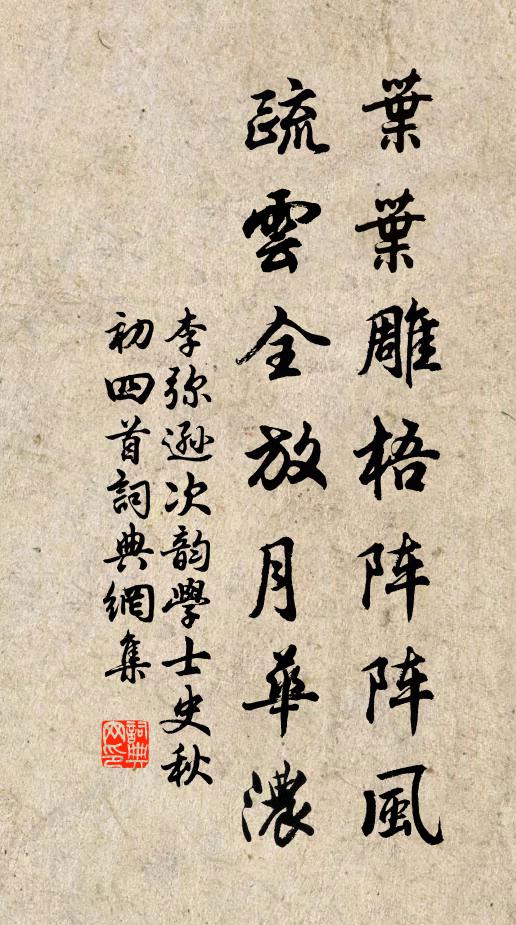 葉葉雕梧阵阵風
疏雲全放月華濃
李弥遜次韵學士史秋
初四首詞典網集
詞典网印